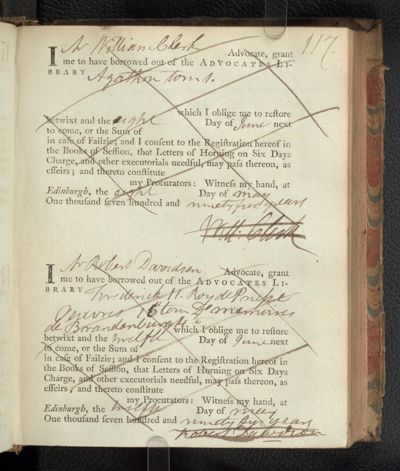 117.
I Mr William Clerk Advocate, grant
me to have borrowed out of the ADVOCATES LI-
BRARY Agathon tom 1.
which I oblige me to reſtore
betwixt and the eight Day of June next
to come, or the Sum of
in caſe of Failzie; and I conſent to the Regiſtration hereof in
the Books of Seſſion, that Letters of Horning on Six Days
Charge, and other executorials needful, may paſs thereon, as
effeirs; and thereto conſtitute
my Procurators: Witneſs my hand, at
Edinburgh, the eight Day of May
One thouſand ſeven hundred and ninety five years
Will: Clerk
I Mr Robert Davidson Advocate, grant
me to have borrowed out of the ADVOCATES LI-
BRARY Frederick II. Roy de Prusse
Oeuvres memoires
de Brandenburg which I oblige me to reſtore
betwixt and the twelfth Day of June next
to come, or the Sum of
in caſe of Failzie; and I conſent to the Regiſtration hereof in
the Books of Seſſion, that Letters of Horning on Six Days
Charge, and other executorials needful, may paſs thereon, as
effeirs; and thereto conſtitute
my Procurators: Witneſs my hand, at
Edinburgh, the twelfth Day of May
One thouſand ſeven hundred and ninety five years
Robert Davidson